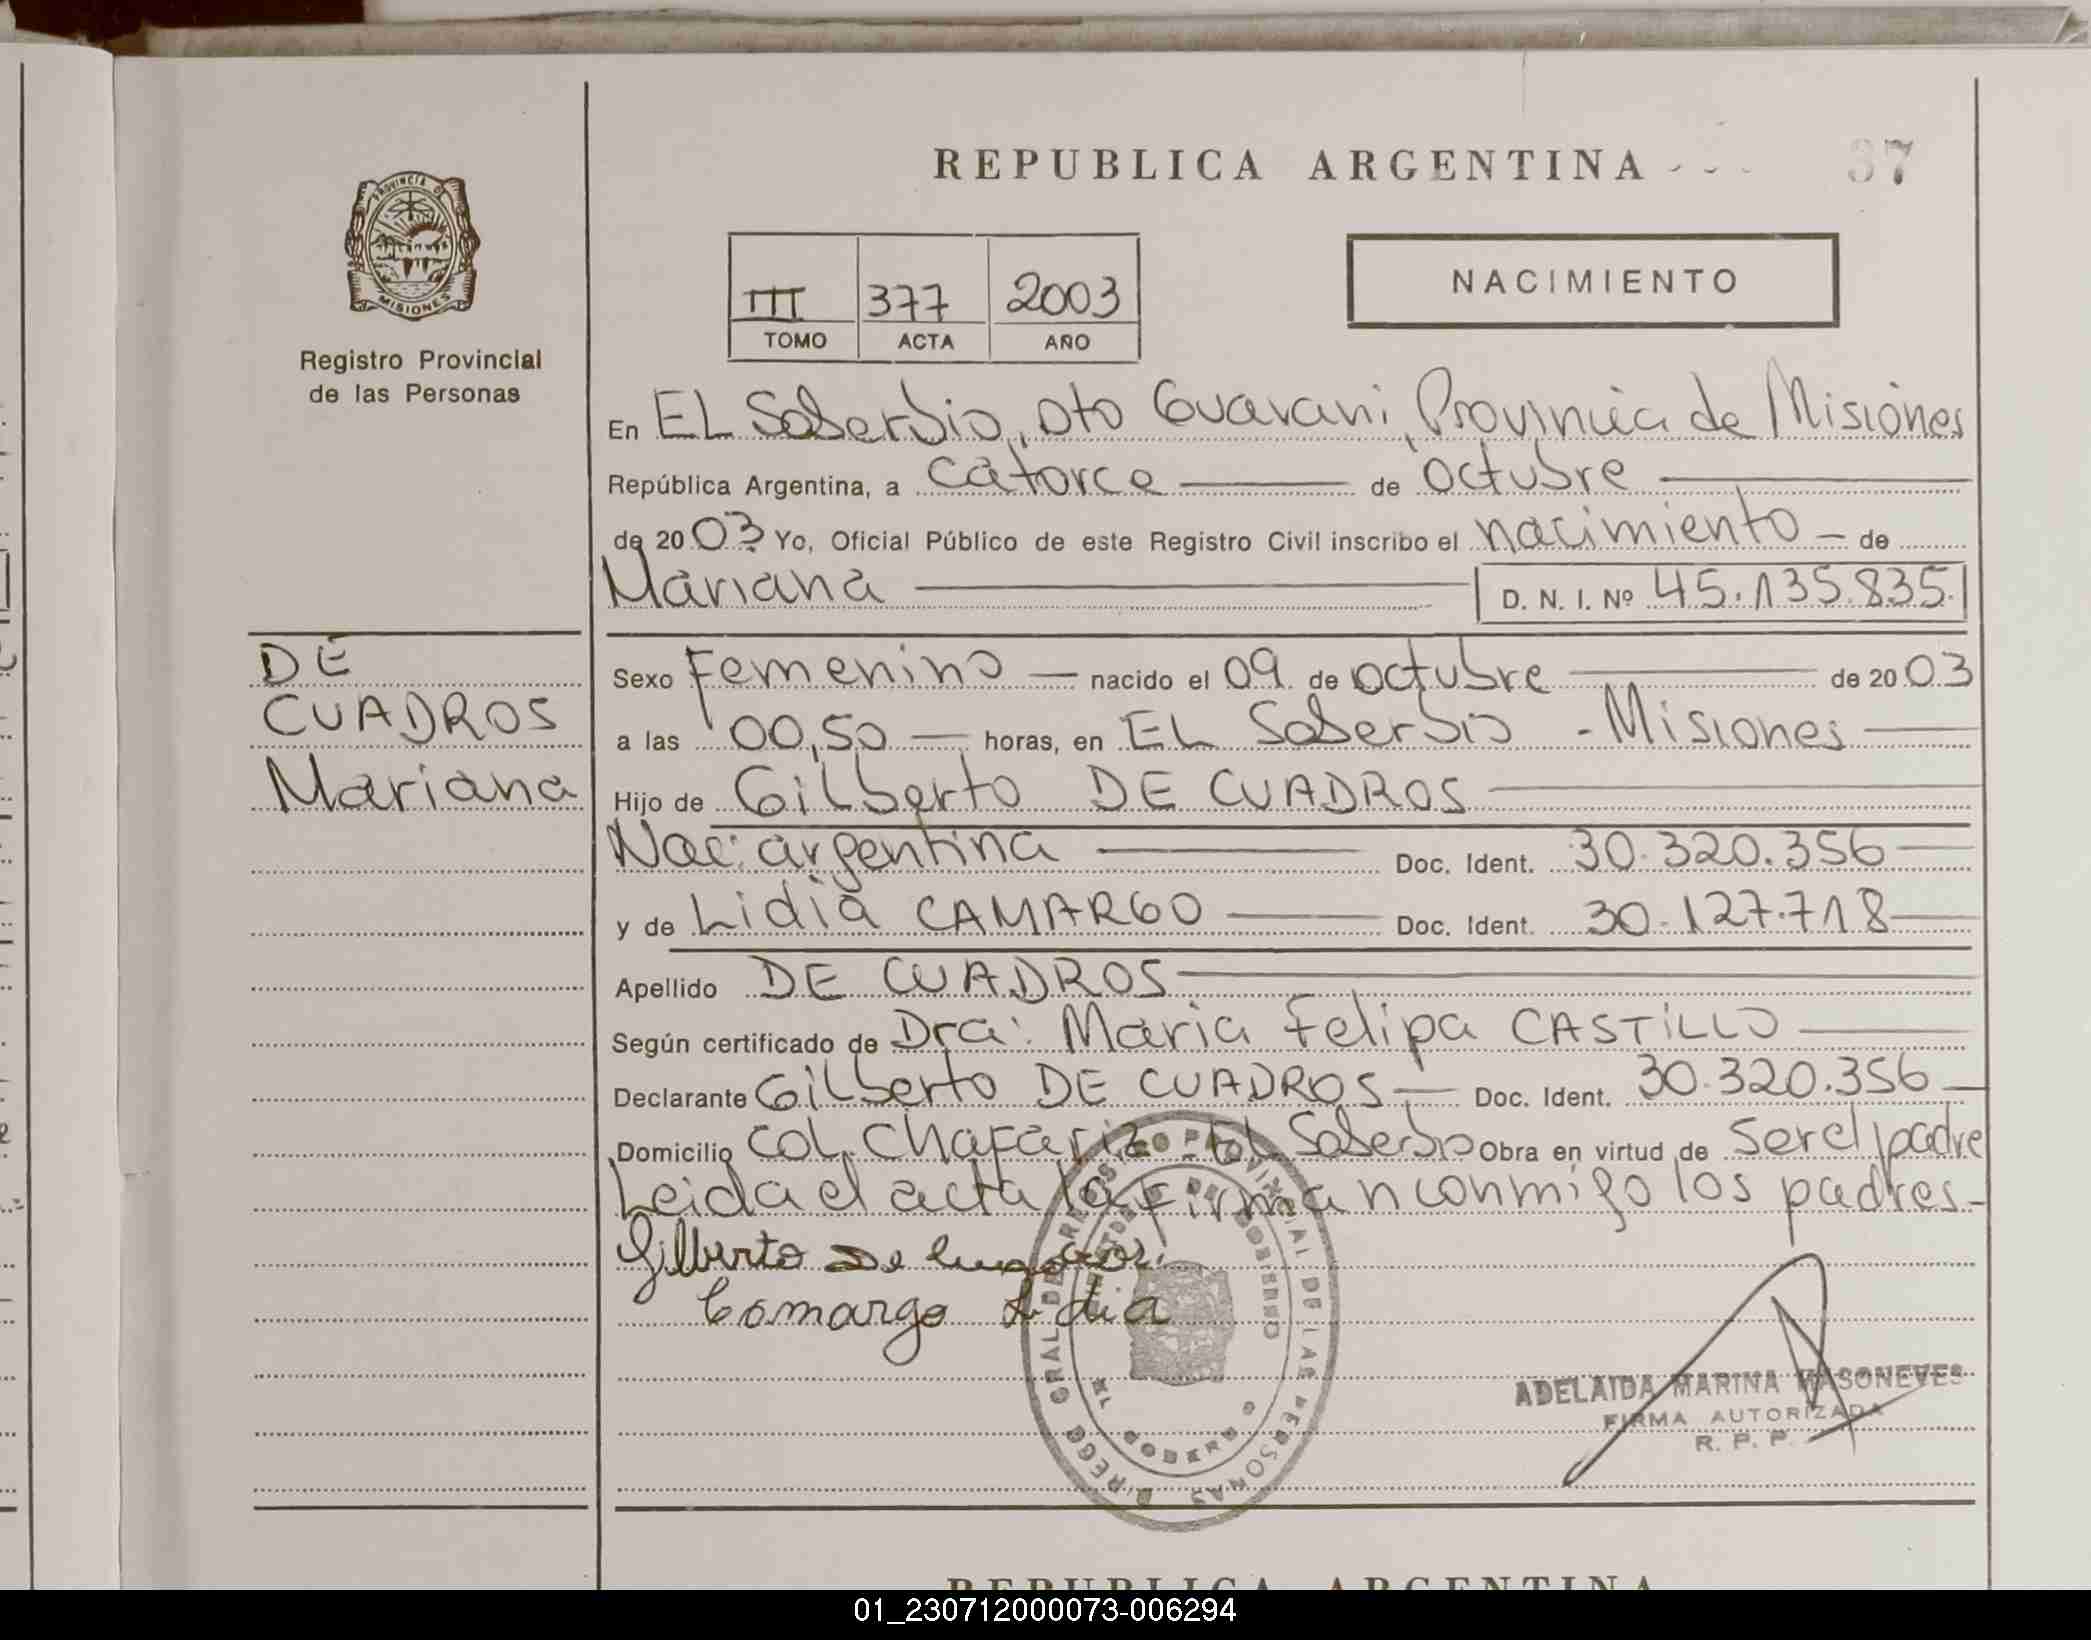 REPUBLICA ARGENTINA
37
PROVINCIA D
MISIONES
Registro Provincial
de las Personas
III 377 2003
TOMO ACTA AÑO
NACIMIENTO
En EL Soberbio, Dto Guarani, Provincia de Misiones
República Argentina, a catorce de octubre
de 2003 Yo, Oficial Público de este Registro Civil inscribo el nacimiento de
Mariana D. N. I. Nº 45.135.835.
DE
CUADROS
Mariana
Sexo Femenino nacido el 09 de octubre de 2003
a las 00,50 horas, en EL Soberbio - Misiones
Hijo de Gilberto DE CUADROS
Nac: argentina Doc. Ident. 30.320.356
y de Lidia CAMARGO Doc. Ident. 30.127.718
Apellido DE CUADROS
Según certificado de Dra: Maria Felipa CASTILLO
Declarante Gilberto DE CUADROS Doc. Ident. 30.320.356
Domicilio COL. Chafariz - EL Soberbio Obra en virtud de ser el padre
Leida el acta la firman conmigo los padres-
Gilberto De Cuadros.
Camargo Lidia
ADELAIDA MARINA MASONEVES
FIRMA AUTORIZADA
R. P. P.
REPUBLICA ARGENTINA
01_230712000073-006294